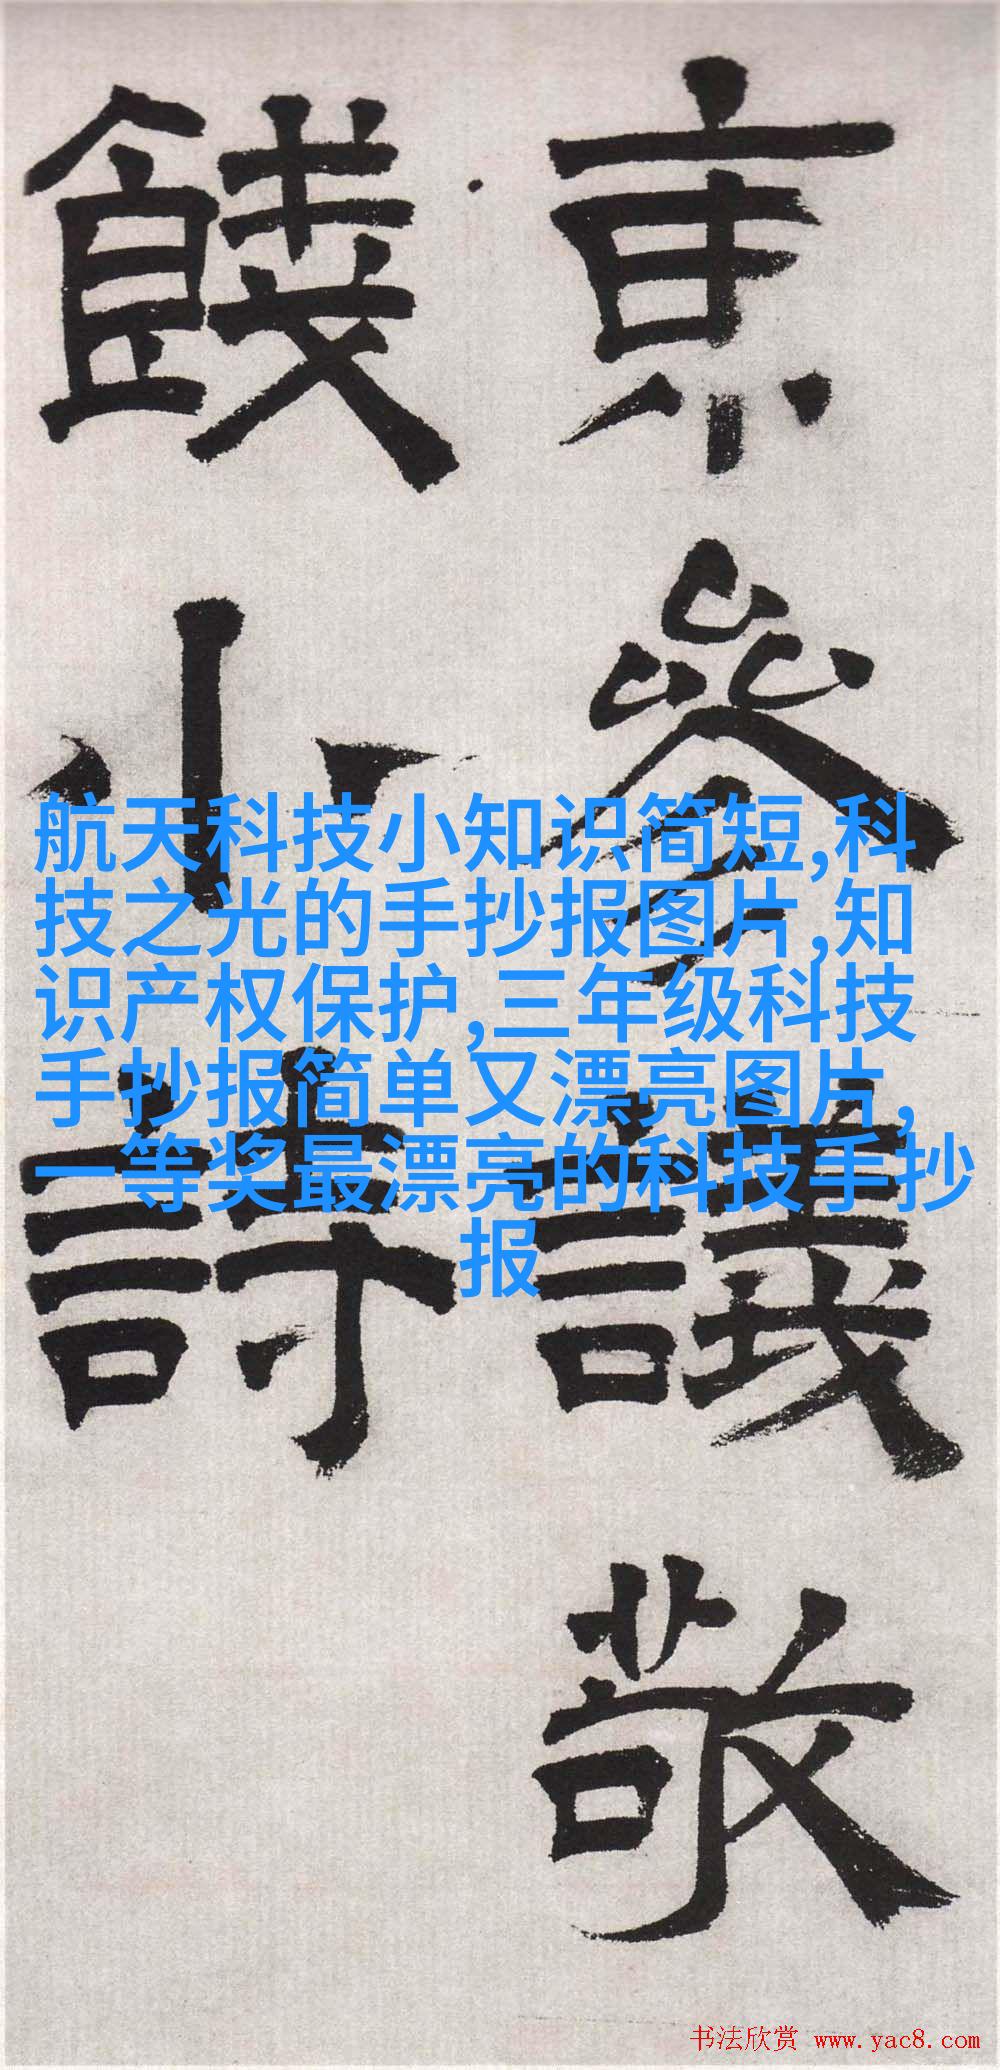 京參議敬
餞小詩
航天科技小知识简短,科
技之光的手抄报图片,知
识产权保护,三年级科技
手抄报简单又漂亮图片,
一等奖最漂亮的科技手抄
报
书法欣赏 www.yac8.com